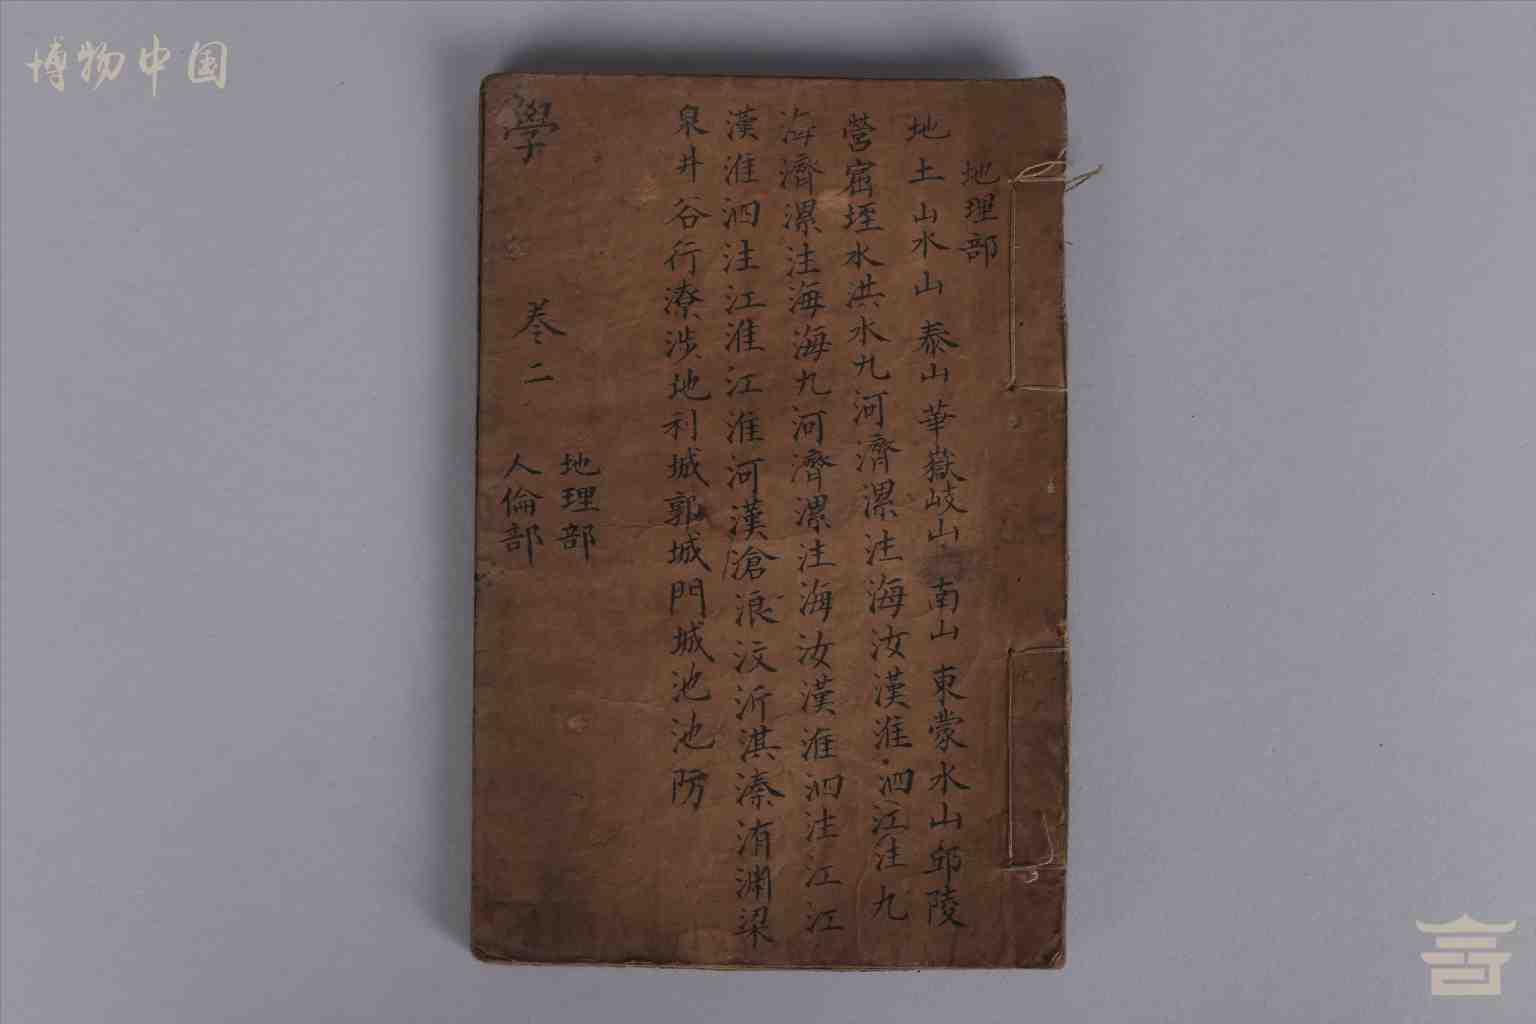 博物中国
地理部
地土山水山 泰山華嶽岐山 南山 東蒙水山邱陵
營窟垤水洪水九河濟漯注海汝漢淮泗江注九
海濟漯注海海九河濟漯注海汝漢淮泗注江江
漢淮泗注江淮江淮河漢滄浪汶沂淇溱洧淵梁
泉井谷行潦涉地利城郭城門城池池防
地理部
人倫部
學
卷二